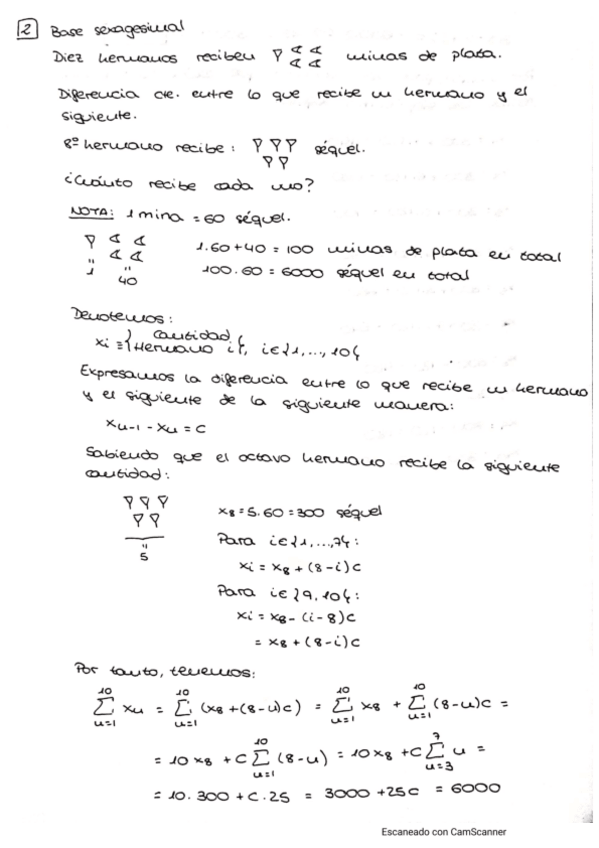 2 Base sexagesimal
Diez hermanos reciben 𒁹 𒌋𒌋𒌋𒌋 minas de plata.
Diferencia cte. entre lo que recibe un hermano y el
siguiente.
8º hermano recibe: 𒁹𒁹𒁹 𒁹𒁹 séquel.
¿Cuánto recibe cada uno?
NOTA: 1 mina = 60 séquel.
𒁹 𒌋𒌋𒌋𒌋 1.60+40 = 100 minas de plata en total
" " 100.60 = 6000 séquel en total
1 40
Denotemos:
xi = {Cantidad Hermano i}, i∈{1,...,10}
Expresamos la diferencia entre lo que recibe un hermano
y el siguiente de la siguiente manera:
xu-1 - xu = c
Sabiendo que el octavo hermano recibe la siguiente
cantidad:
𒁹𒁹𒁹
𒁹𒁹 x8 = 5.60 = 300 séquel
" 5
Para i∈{1,...,7}:
xi = x8 + (8-i)c
Para i∈{9,10}:
xi = x8 - (i-8)c
= x8 + (8-i)c
Por tanto, tenemos:
10∑u=1 xu = 10∑u=1 (x8+(8-u)c) = 10∑u=1 x8 + 10∑u=1 (8-u)c =
= 10x8 + c 10∑u=1 (8-u) = 10x8 + c 7∑u=3 u =
= 10.300 + c.25 = 3000 + 25c = 6000
Escaneado con CamScanner